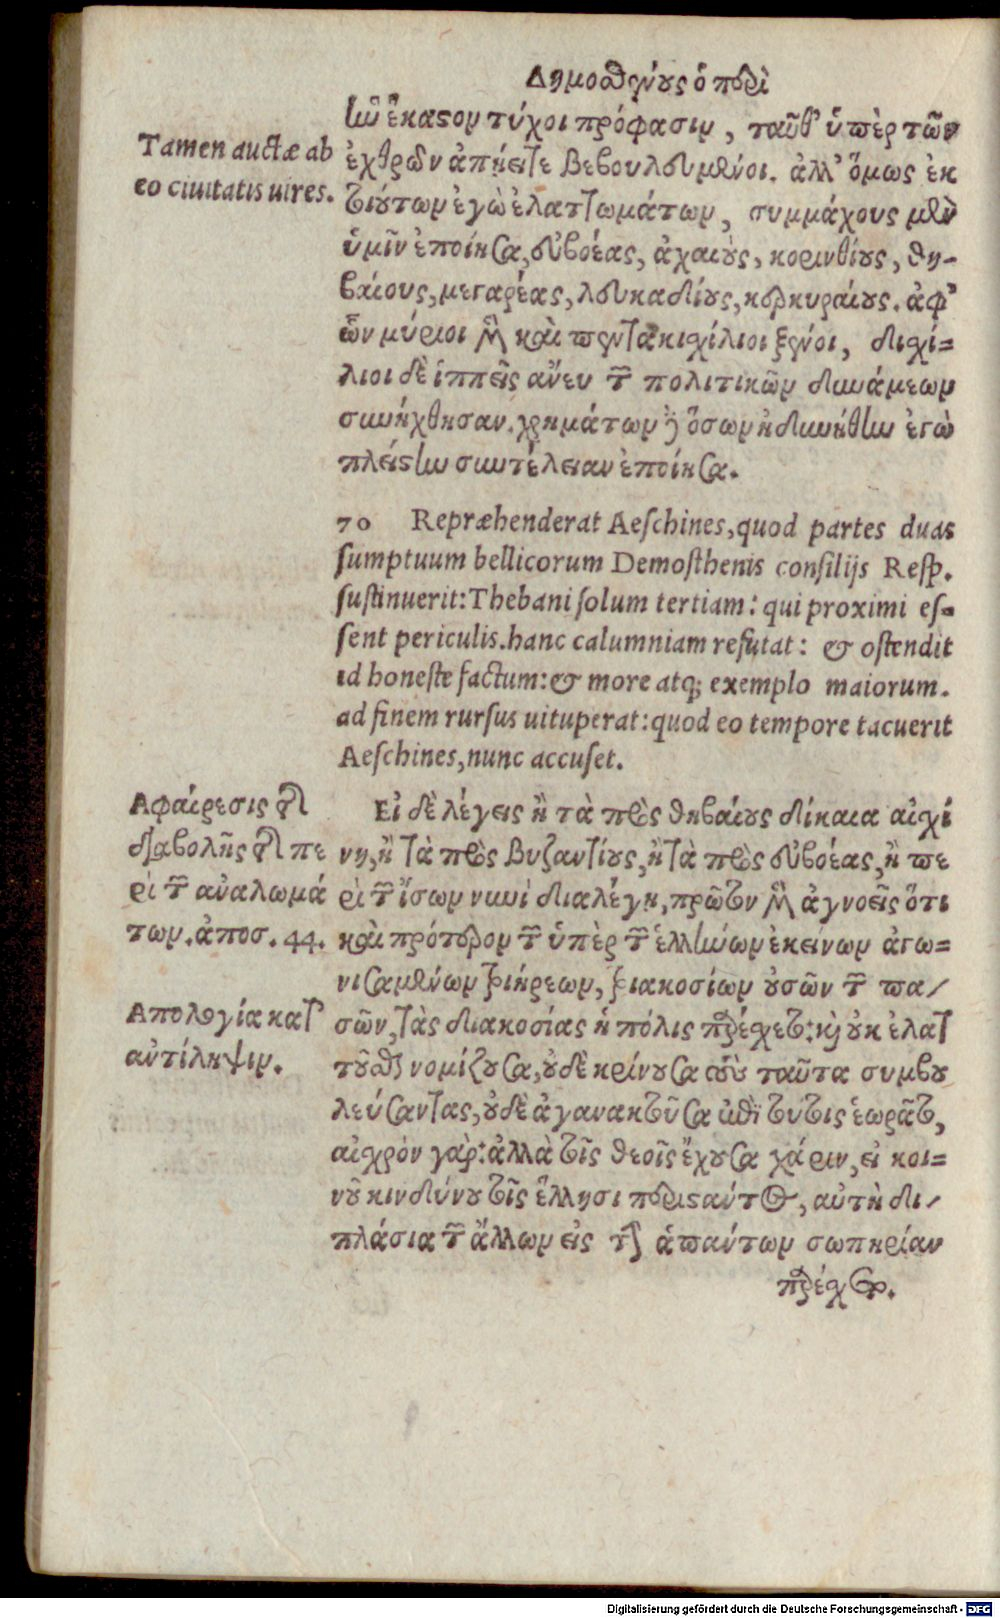 Δημοσθένους ὁ περὶ
Tamen auctæ ab
eo ciuitatis uires.
ἣν ἕκαστον τύχοι πρόφασιν, ταῦθ᾽ ὑπὲρ τῶν
ἐχθρῶν ἀπῄειτε βεβουλευμένοι. ἀλλ᾽ ὅμως ἐκ
τοιούτων ἐγὼ ἐλαττωμάτων, συμμάχους μὲν
ὑμῖν ἐποίησα, εὐβοέας, ἀχαιοὺς, κορινθίους, θη-
βαίους, μεγαρέας, λευκαδίους, κερκυραίους. ἀφ᾽
ὧν μύριοι μὲν καὶ πεντακισχίλιοι ξένοι, δισχί=
λιοι δὲ ἱππεῖς ἄνευ τῶν πολιτικῶν δυνάμεων
συνήχθησαν. χρημάτων δὲ ὅσων ἠδυνήθην ἐγὼ
πλείστην συντέλειαν ἐποίησα.
70 Repræhenderat Aeschines, quod partes duas
sumptuum bellicorum Demosthenis consilijs Resp.
sustinuerit: Thebani solum tertiam: qui proximi es=
sent periculis. hanc calumniam refutat: & ostendit
id honeste factum: & more atq; exemplo maiorum.
ad finem rursus uituperat: quod eo tempore tacuerit
Aeschines, nunc accuset.
Αφαίρεσις τῆς
διαβολῆς τῆς πε
ρὶ τῶν ἀναλωμά
των. ἀποσ. 44.
Απολογία κατ᾽
ἀντίληψιν.
Εἰ δὲ λέγεις ἢ τὰ πρὸς θηβαίους δίκαια αἰσχί
νη, ἢ τὰ πρὸς βυζαντίους, ἢ τὰ πρὸς εὐβοέας, ἢ πε
ρὶ τῶν ἴσων νυνὶ διαλέγῃ, πρῶτον μὲν ἀγνοεῖς ὅτι
καὶ πρότερον τῶν ὑπὲρ τῶν ἑλλήνων ἐκείνων ἀγω=
νισαμένων τριήρεων, τριακοσίων οὐσῶν τῶν πα/
σῶν, τὰς διακοσίας ἡ πόλις παρέσχετο: καὶ οὐκ ἐλατ
τοῦσθαι νομίζουσα, οὐδὲ κρίνουσα τοὺς ταῦτα συμβου
λεύσαντας, οὐδὲ ἀγανακτοῦσα ἐπὶ τούτοις ἑωρᾶτο,
αἰσχρόν γάρ: ἀλλὰ τοῖς θεοῖς ἔχουσα χάριν, εἰ κοι=
νοῦ κινδύνου τοῖς ἕλλησι περιστάντος, αὐτὴ δι/
πλάσια τῶν ἄλλων εἰς τὴν ἁπάντων σωτηρίαν
παρέσχετο.
Digitalisierung gefördert durch die Deutsche Forschungsgemeinschaft - DFG